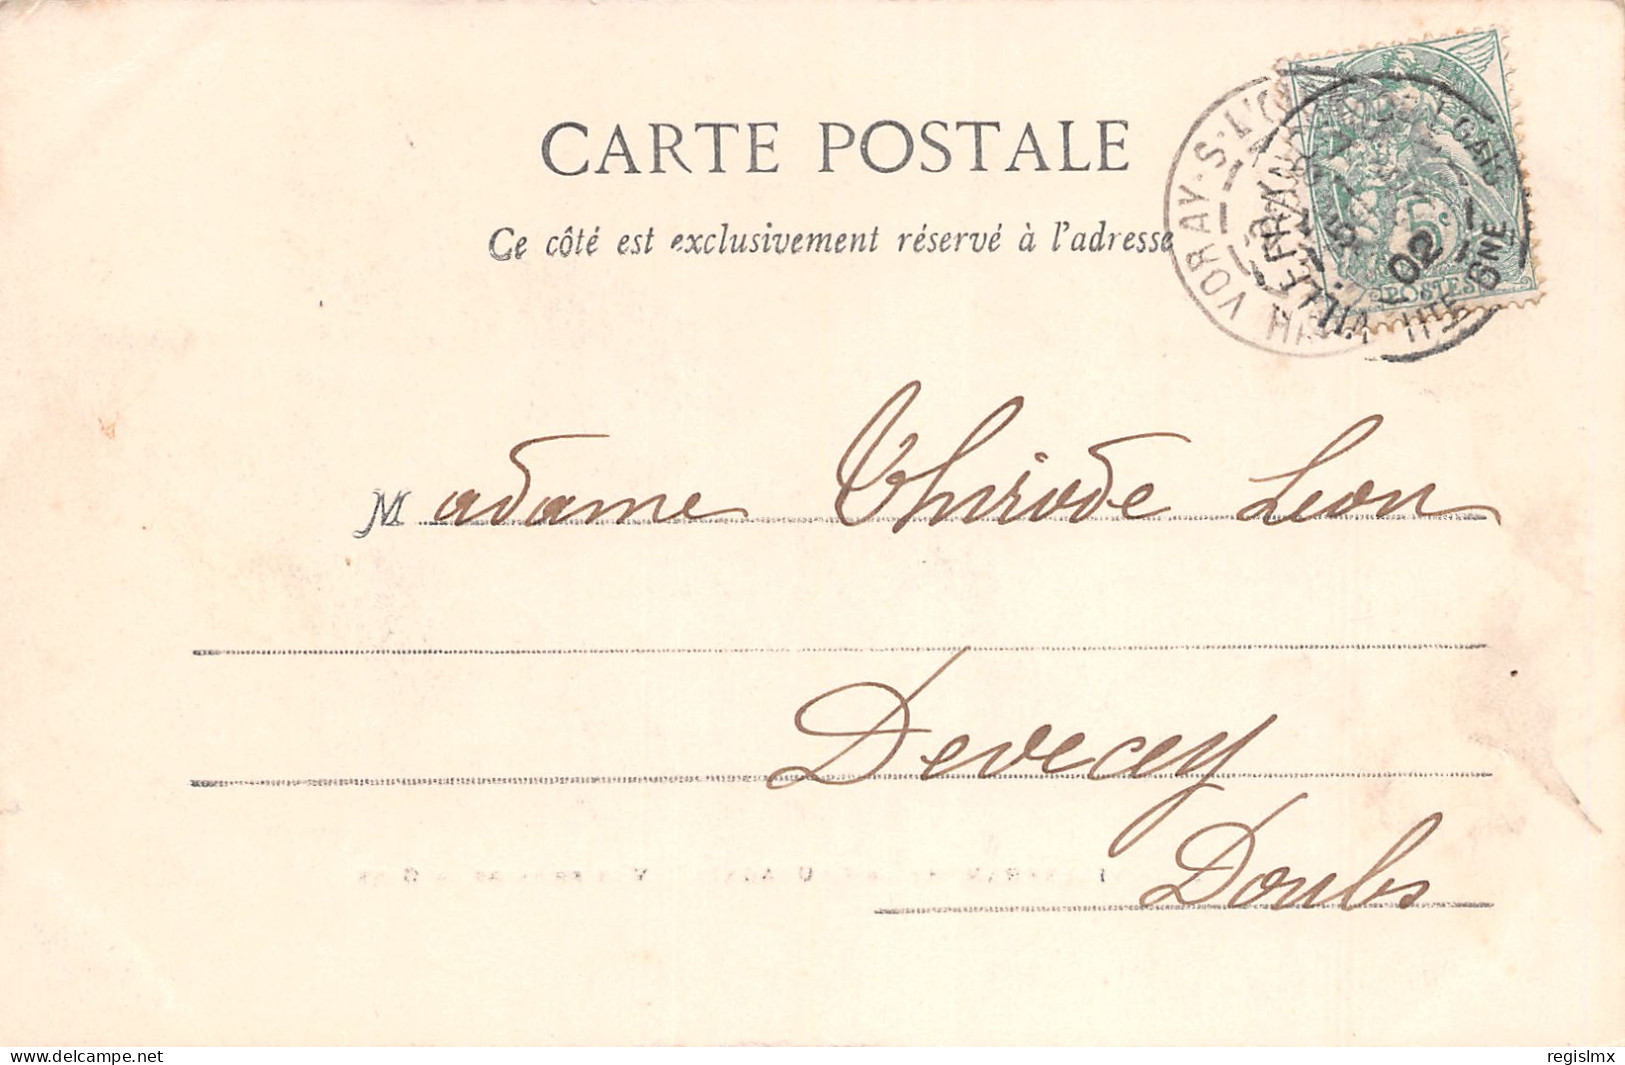 CARTE POSTALE
Ce côté est exclusivement réservé à l'adresse
VORAY-S-L'O
02
5c
POSTES
Madame Thirode Leon
Devecey
Doubs
www.delcampe.net
regislmx